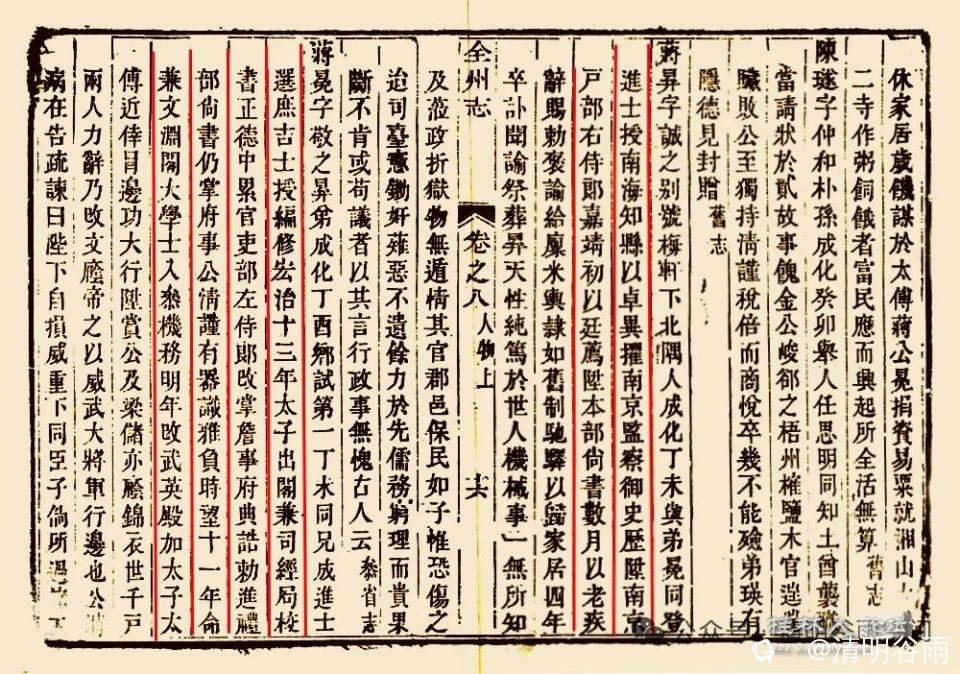 休家居歲饑謀於太傅蔣公冕捐資易粟就湘山
二寺作粥飼餓者當民應而興起所全活無算 舊志
陳璲字仲和朴孫成化癸卯舉人任思明同知土酋襲
當請狀於貳故事餽金公峻郤之梧州榷鹽木官逞
贓敗公至獨持清謹稅倍而商悅卒幾不能殮弟瑛有
隱德見封贈 舊志
蔣昇字誠之别號梅軒下北隅人成化丁未與弟冕同登
進士授南海知縣以卓異擢南京監察御史歷陞南京
戸部右侍郎嘉靖初以廷薦陞本部尚書數月以老疾
辭賜勅褒諭給廩米輿隷如舊制馳驛以歸家居四年
卒訃聞諭祭葬昇天性純篤於世人機械事一無所知
全州志
卷之八 人物上
十六
及蒞政折獄物無遁情其官郡邑保民如子惟恐傷之
迨司臺憲鋤奸薙惡不遺餘力於先儒務窮理而貴果
斷不肯或苟議者以其言行政事無愧古人云 叅省志
蔣冕字敬之昇弟成化丁酉鄉試第一丁未同兄成進士
選庶吉士授編修宏治十三年太子出閣兼司經局校
書正德中累官吏部左侍郎改掌詹事府典誥勅進禮
部尚書仍掌府事公清謹有器識雅負時望十一年命
兼文淵閣大學士入叅機務明年改武英殿加太子太
傅近倖冐邊功大行陞賞公及梁儲亦廕錦衣世千戸
兩人力辭乃改文廕帝之以威武大將軍行邊也公
病在告疏諫曰陛下自損威重下同臣子倘所過
公众号
桂林
@清明谷雨